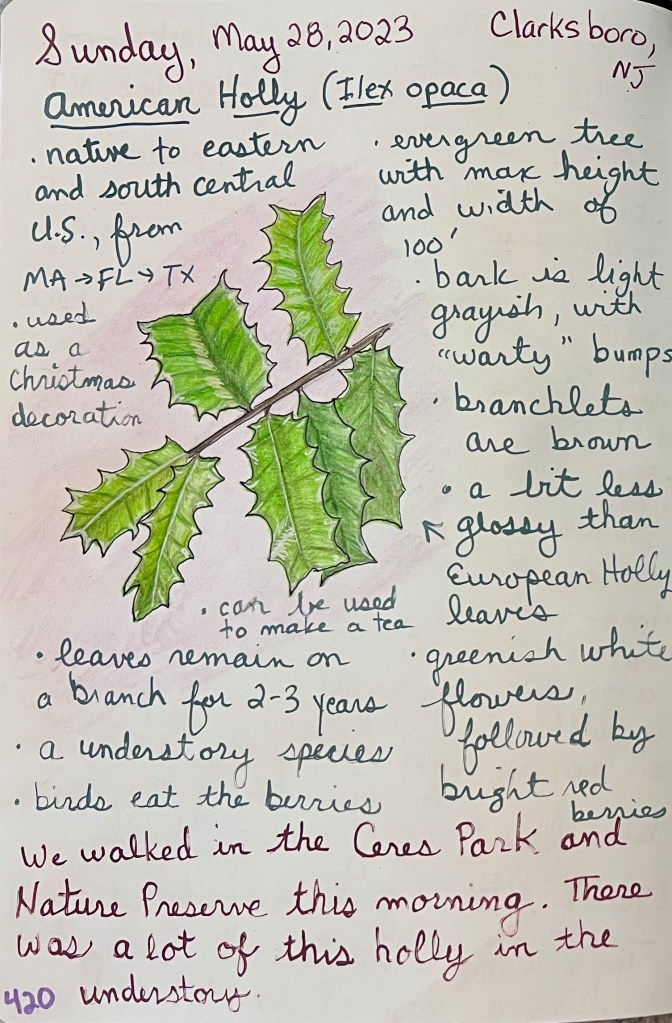 Sunday, May 28, 2023
Clarksboro,
NJ
American Holly (Ilex opaca)
• native to eastern
and south central
U.S., from
MA → FL → TX
• used
as a
Christmas
decoration
• evergreen tree
with max height
and width of
100'
• bark is light
grayish, with
"warty" bumps
• branchlets
are brown
• a bit less
glossy than
European Holly
leaves
• can be used
to make a tea
• leaves remain on
a branch for 2-3 years
• a understory species
• birds eat the berries
• greenish white
flowers,
followed by
bright red
berries
We walked in the Ceres Park and
Nature Preserve this morning. There
was a lot of this holly in the
understory.
420